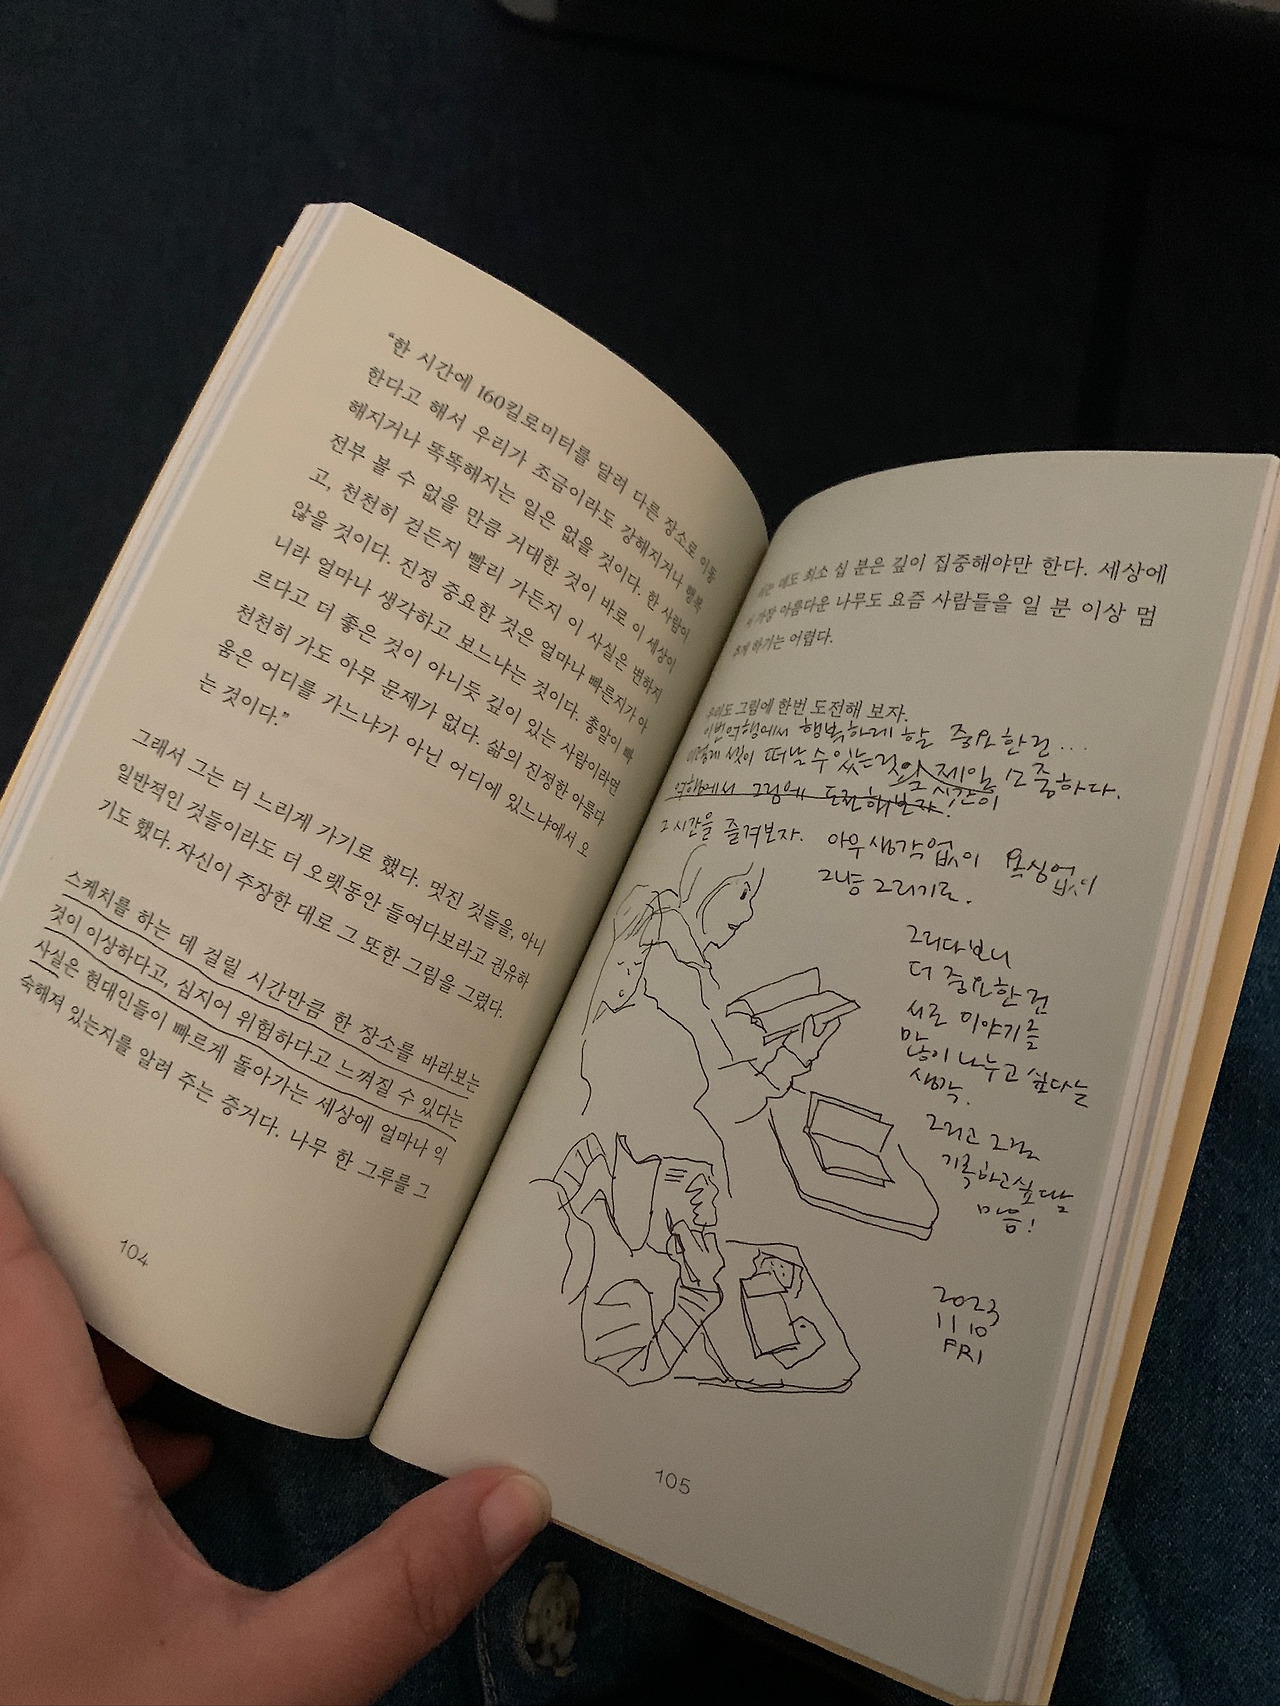 “한 시간에 160킬로미터를 달려 다른 장소로 이동
한다고 해서 우리가 조금이라도 강해지거나 행복
해지거나 똑똑해지는 일은 없을 것이다. 한 사람이
전부 볼 수 없을 만큼 거대한 것이 바로 이 세상이
고, 천천히 걷든지 빨리 가든지 이 사실은 변하지
않을 것이다. 진정 중요한 것은 얼마나 빠른지가 아
니라 얼마나 생각하고 보느냐는 것이다. 총알이 빠
르다고 더 좋은 것이 아니듯 깊이 있는 사람이라면
천천히 가도 아무 문제가 없다. 삶의 진정한 아름다
움은 어디를 가느냐가 아닌 어디에 있느냐에서 오
는 것이다.”
그래서 그는 더 느리게 가기로 했다. 멋진 것들을, 아니
일반적인 것들이라도 더 오랫동안 들여다보라고 권유하
기도 했다. 자신이 주장한 대로 그 또한 그림을 그렸다.
스케치를 하는 데 걸릴 시간만큼 한 장소를 바라보는
것이 이상하다고, 심지어 위험하다고 느껴질 수 있다는
사실은 현대인들이 빠르게 돌아가는 세상에 얼마나 익
숙해져 있는지를 알려 주는 증거다. 나무 한 그루를 그
104
데도 최소 십 분은 깊이 집중해야만 한다. 세상에
가장 아름다운 나무도 요즘 사람들을 일 분 이상 멈
추게 하기는 어렵다.
우리도 그림에 한번 도전해 보자.
이번여행에서 행복하게 할 중요한건...
이렇게 셋이 떠날 수 있는 제일 소중하다.
시간이
여행에서 그림에 도전해보자!
그 시간을 즐겨보자. 아무생각없이 욕심없이
그냥 그리기로.
그리다보니
더 중요한건
서로 이야기를
많이 나누고 싶다는
생각.
그리고 그걸
기록하고싶다는
마음!
2023
11 10
FRI
105